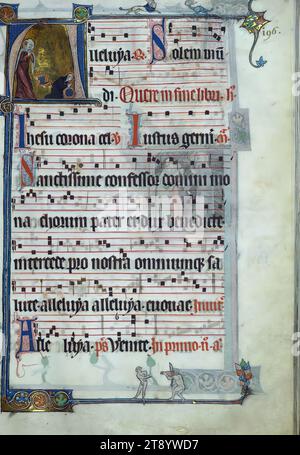 196.
Alleluya. Solem mun
di. Quere in fine libri. R
Ihesu corona cel Iustus germi
Sanctissime confessor domini mo
nachorum pater et dux benedicte
intercede pro nostra omniumque sa
lute alleluya alleluya. euouae Inuit
Alle luya. ps Venite. In primo n. a
alamy
Image ID: 2T81YWD7
www.alamy.com